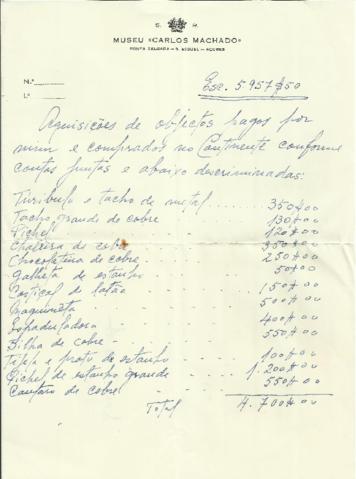 S. R.
MUSEU «CARLOS MACHADO»
PONTA DELGADA — S. MIGUEL — AÇORES
N.º
L.º
Esc. 5 957$50
Aquisições de objectos pagos por
mim e comprados no Continente conforme
contas juntas e abaixo descriminadas:
Turibulo e tacho de metal 350$00
Tacho grande de cobre 130$00
Pichel 120$00
Chaleira de cobre 350$00
Chocolateira de cobre 250$00
Galheta de estanho 50$00
Castiçal de latão 150$00
Maquineta 500$00
400$00
Bilha de cobre 550$00
e prato de estanho 100$00
Pichel de estanho grande 1.200$00
Cantaro de cobre 550$00
Total 4.700$00